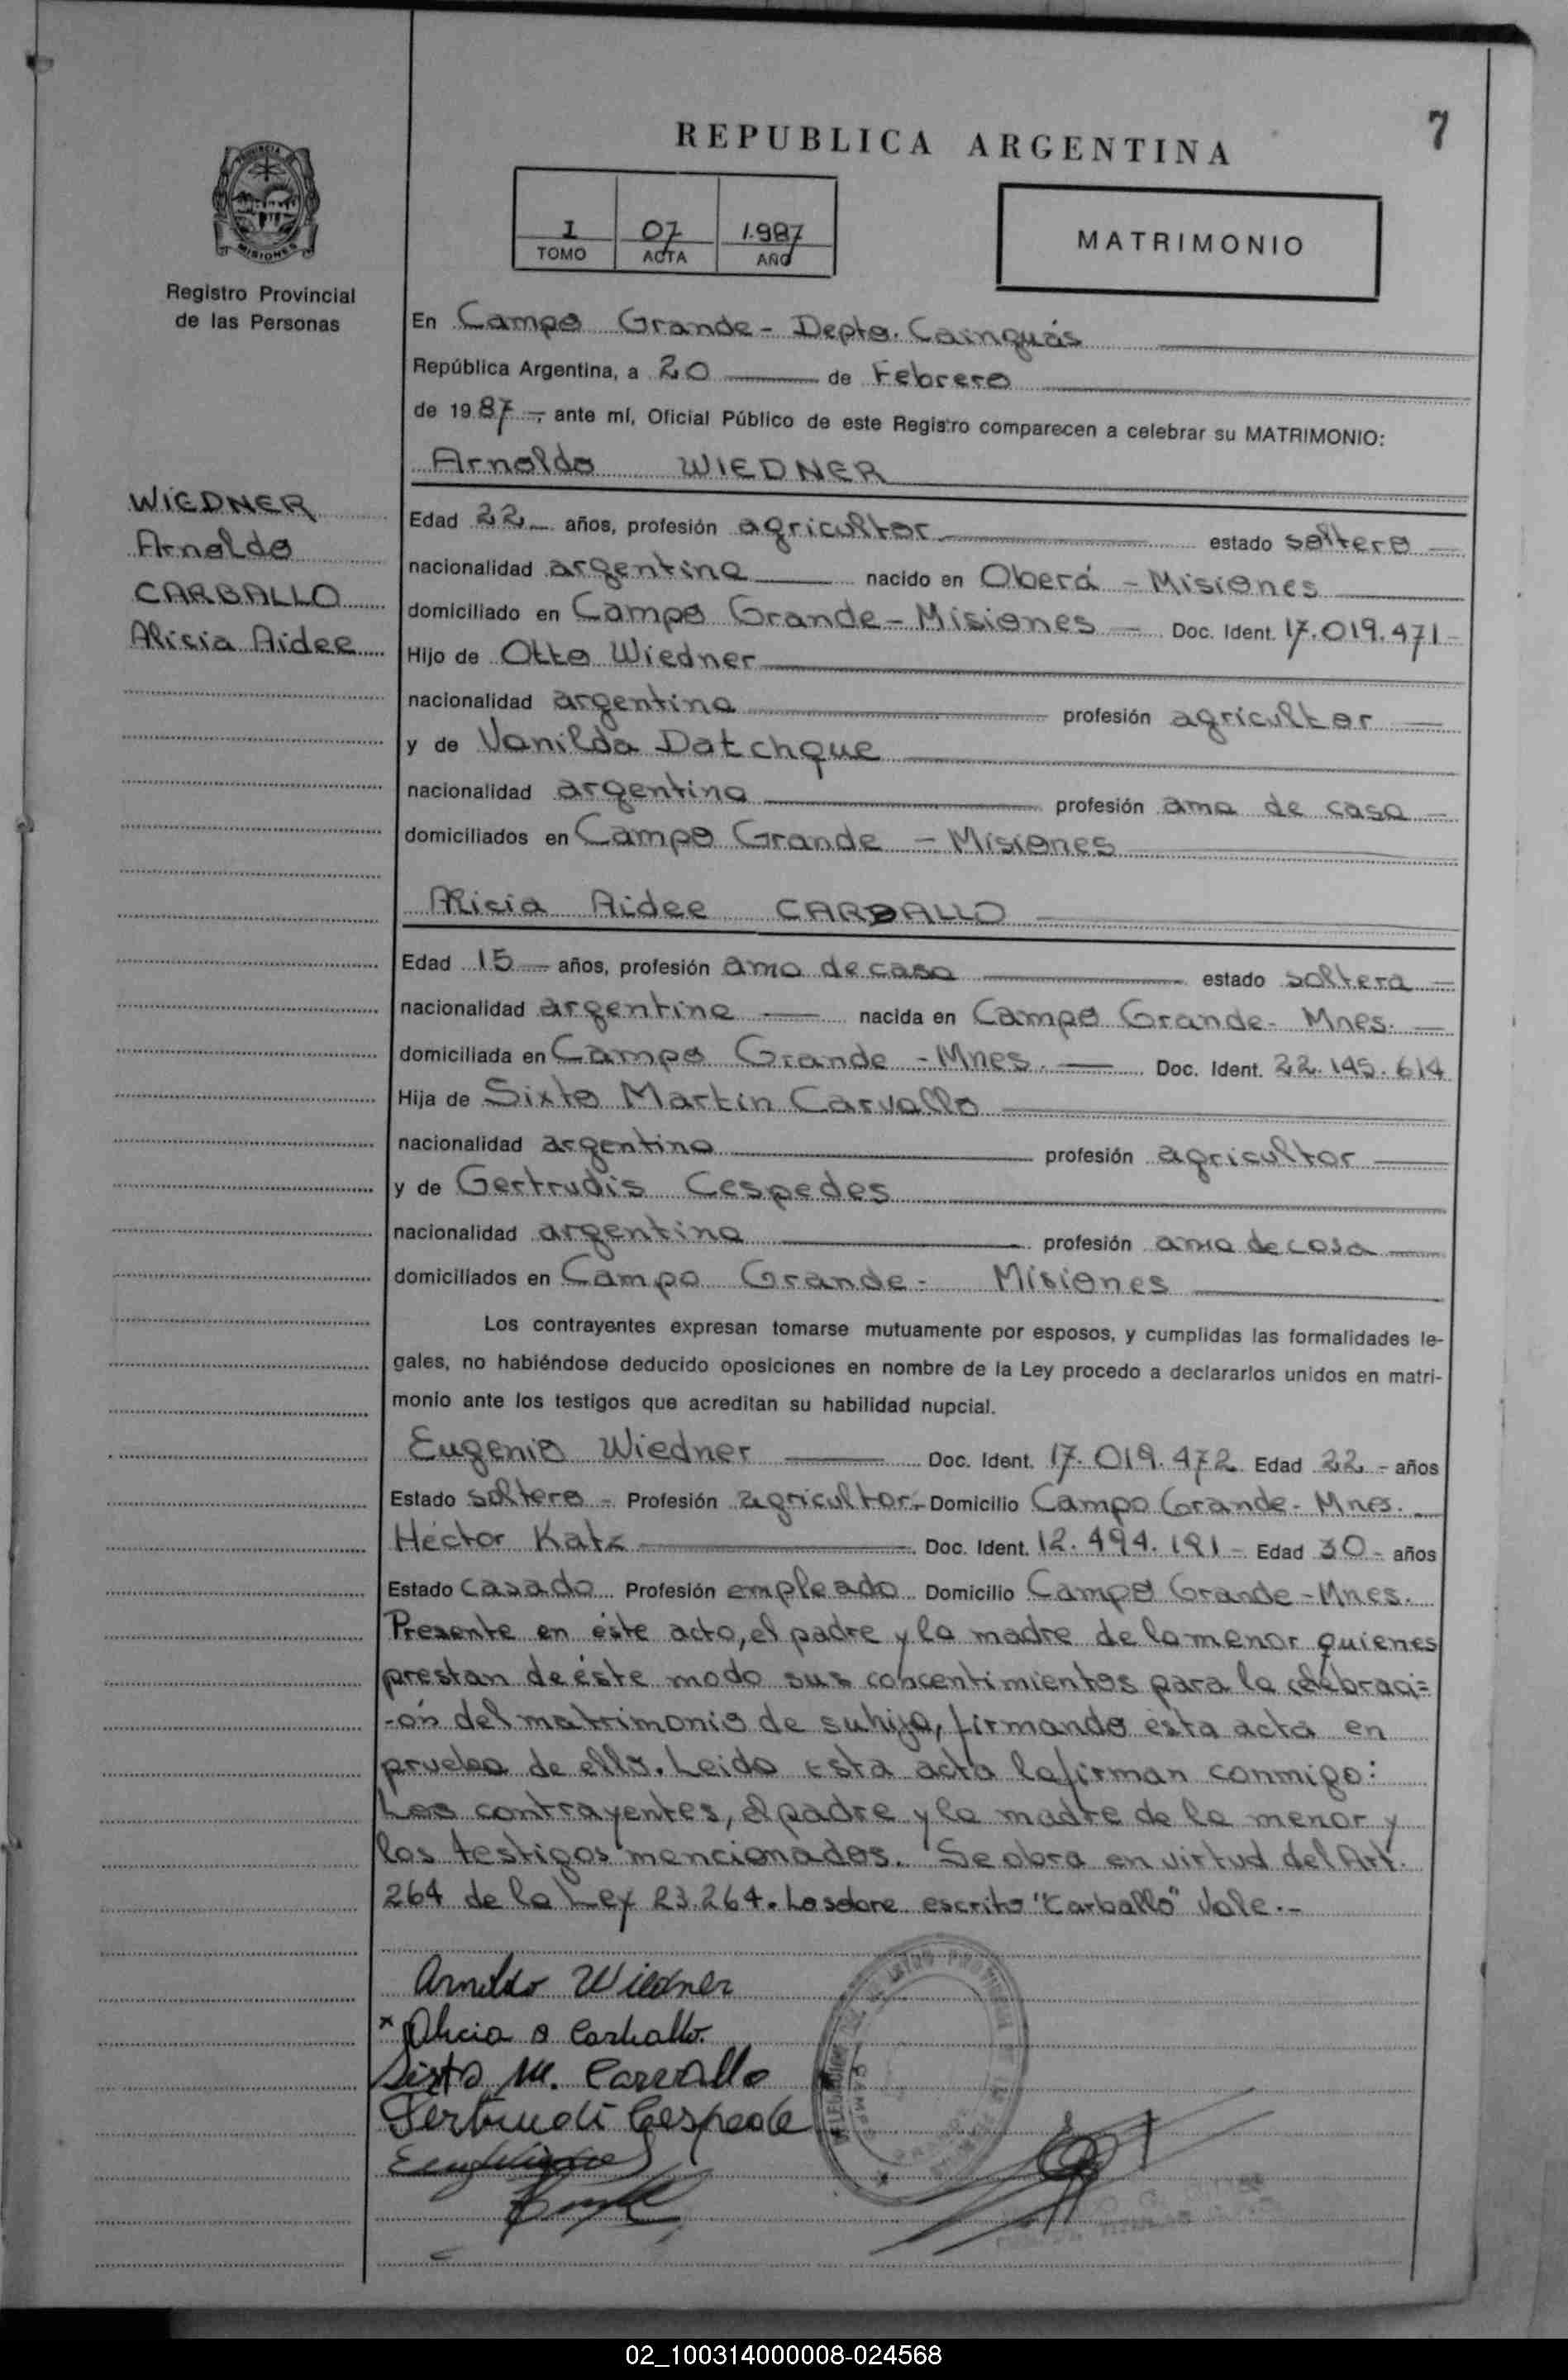 REPUBLICA ARGENTINA
7
PROVINCIA DE
MISIONES
Registro Provincial
de las Personas
1 07 1.987
TOMO ACTA AÑO
MATRIMONIO
En Campo Grande - Depto. Cainguás
República Argentina, a 20 de Febrero
de 1987 -, ante mí, Oficial Público de este Registro comparecen a celebrar su MATRIMONIO:
Arnoldo WIEDNER
WIEDNER
Arnoldo
CARBALLO
Alicia Aidee
Edad 22 años, profesión agricultor estado soltero
nacionalidad argentina nacido en Oberá - Misiones
domiciliado en Campo Grande - Misiones Doc. Ident. 17.019.471-
Hijo de Otto Wiedner
nacionalidad argentina profesión agricultor
y de Vanilda Datchque
nacionalidad argentina profesión ama de casa
domiciliados en Campo Grande - Misiones
Alicia Aidee CARBALLO
Edad 15 años, profesión ama de casa estado soltera
nacionalidad argentina nacida en Campo Grande - Mnes.
domiciliada en Campo Grande - Mnes. Doc. Ident. 22.145.614
Hija de Sixto Martín Carvallo
nacionalidad argentina profesión agricultor
y de Gertrudis Cespedes
nacionalidad argentina profesión ama de casa
domiciliados en Campo Grande - Misiones
Los contrayentes expresan tomarse mutuamente por esposos, y cumplidas las formalidades le-
gales, no habiéndose deducido oposiciones en nombre de la Ley procedo a declararlos unidos en matri-
monio ante los testigos que acreditan su habilidad nupcial.
Eugenio Wiedner Doc. Ident. 17.019.472 Edad 22 - años
Estado soltero - Profesión agricultor - Domicilio Campo Grande - Mnes.
Héctor Katz Doc. Ident. 12.494.191 - Edad 30 - años
Estado casado Profesión empleado Domicilio Campo Grande - Mnes.
Presente en éste acto, el padre y la madre de la menor quienes
prestan de éste modo sus concentimientos para la celebraci=
-ón del matrimonio de su hija, firmando esta acta en
prueba de ello. Leido esta acta la firman conmigo:
Los contrayentes, el padre y la madre de la menor y
los testigos mencionados. Se obra en virtud del Art.
264 de la Ley 23.264. Lo sobre escrito "Carballo" Vale.-
Arnoldo Wiedner
x Alicia A Carballo.
Sixto M. Carvallo
Gertrudi Cespede
02_100314000008-024568